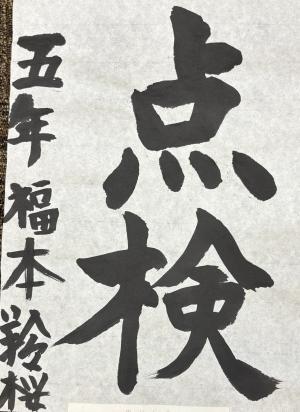 点検
五年 福本 羚桜